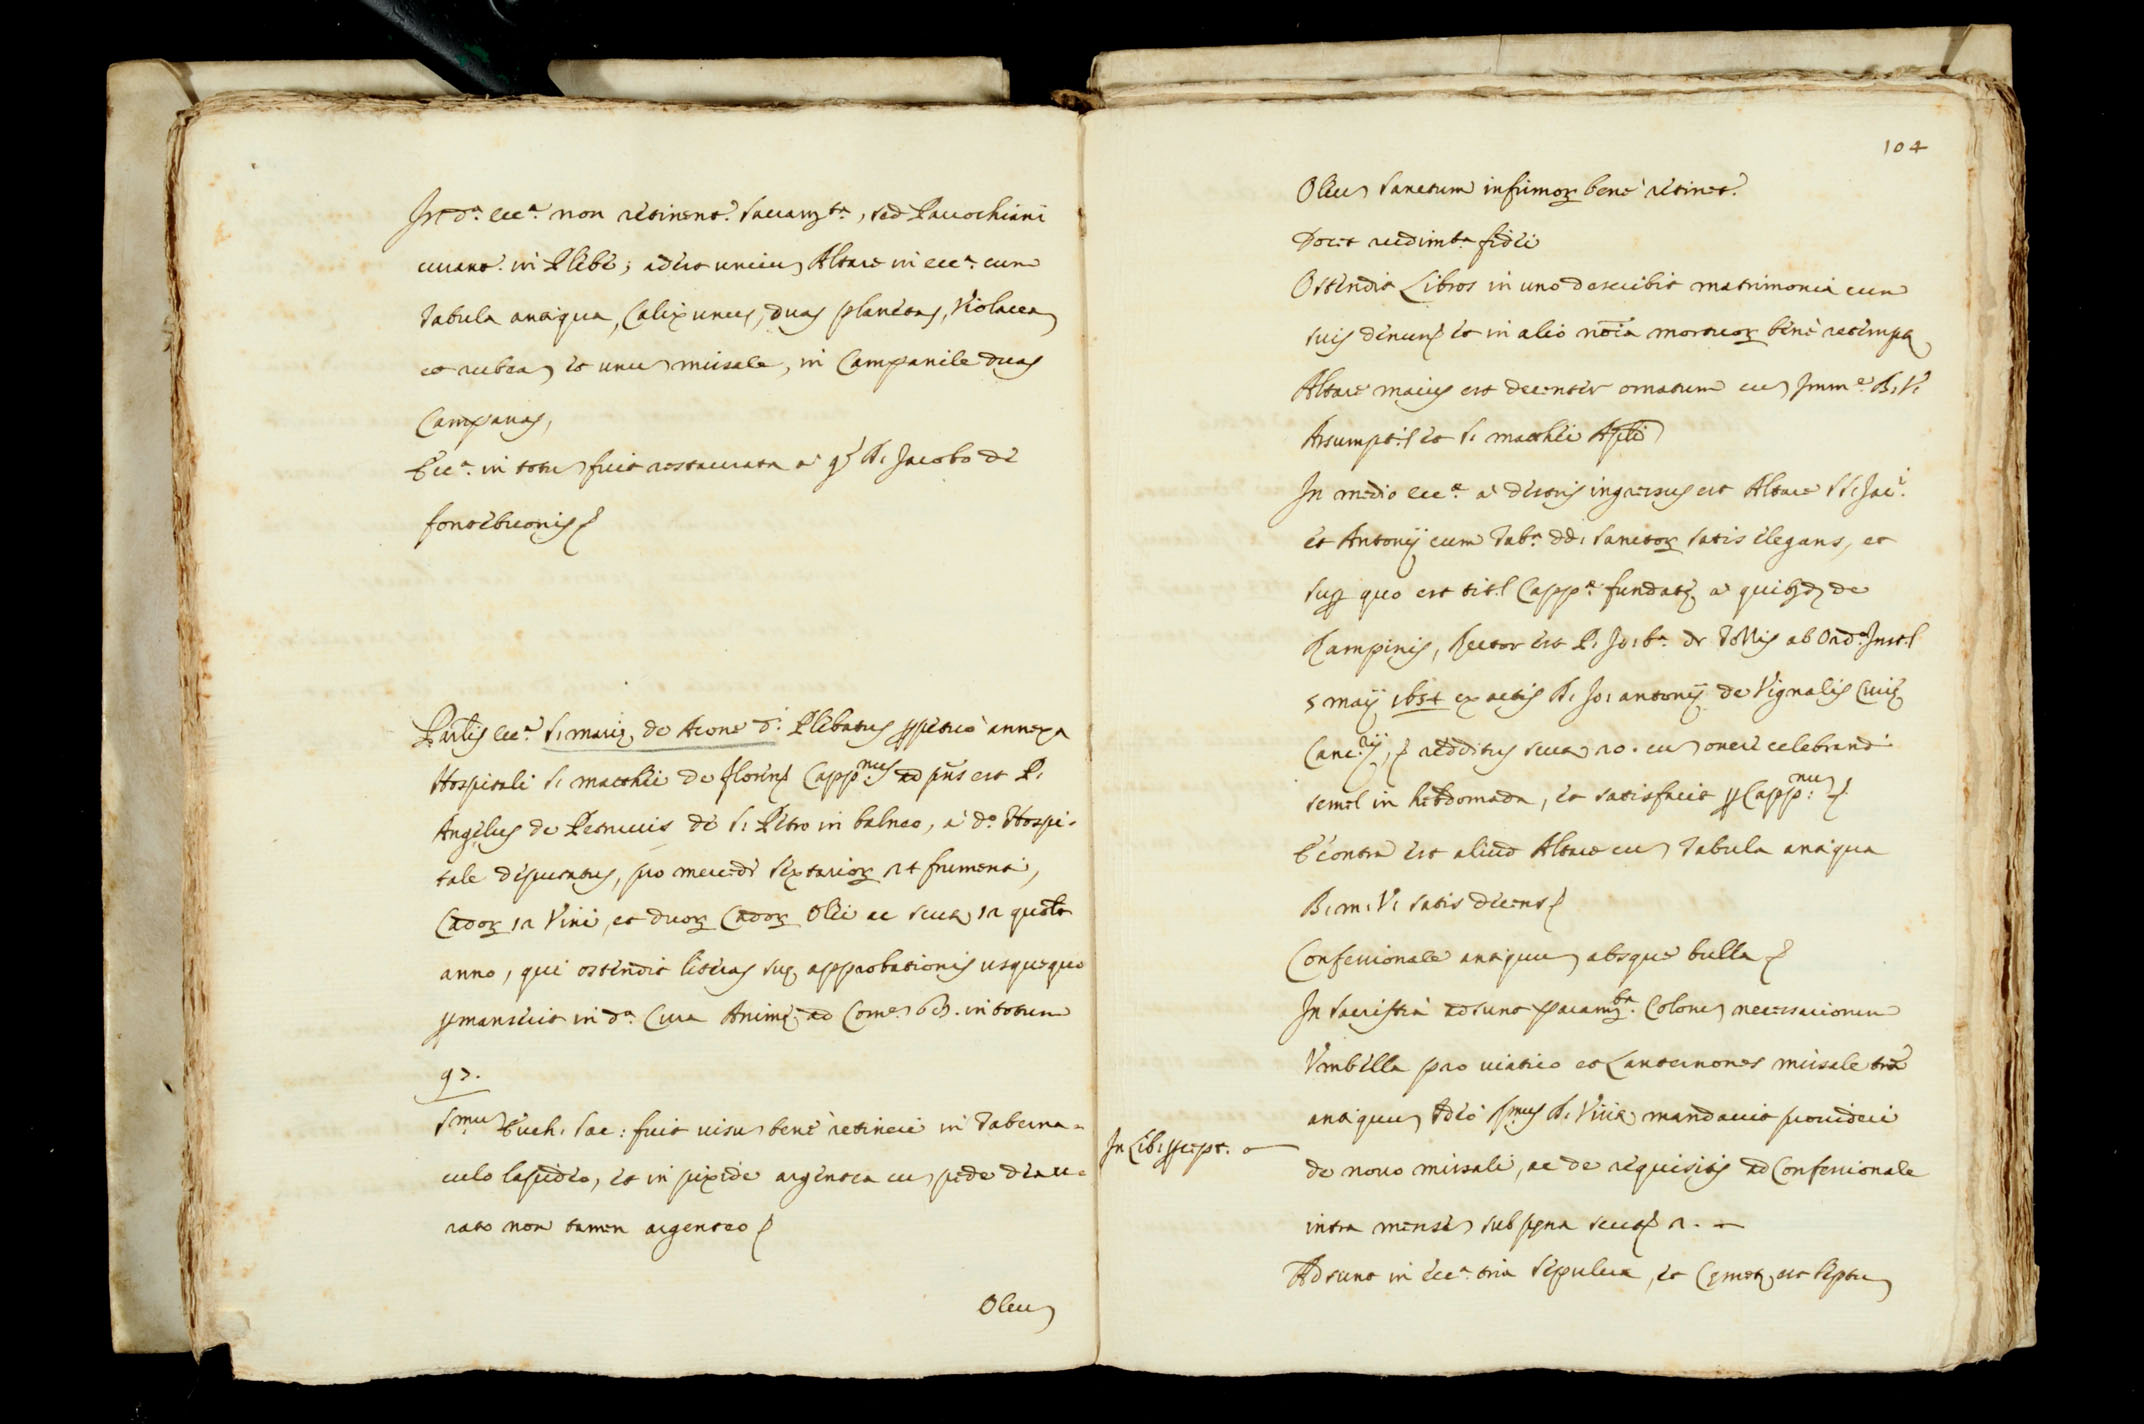 In d.ª ecc.ª non retinent.r sacram.ta, sed Parochiani
curant.r in Plebe; adest unicu Altare in ecc.ª cum
Tabula antiqua, Calix unus, duas planetas, Violacea
et rubea, et unu missale, in Campanile duas
Campanas,
Ecc.ª in totu fuit restaurata a q. D. Jacobo de
fontebuonis
Parlis ecc.ª S. Marię de Acone d.i Plebatus ppetuo annexa
Hospitali S. Matthei de Floren. Capp.nus ad pñs est P.
Angelus de Petruccis de S. Petro in balneo, a d.o Hospi-
tale deputatus, pro mercede sextarior. 24 frumenti,
Cador. 12 Vini, et duor. Cador. Olei ac scut. 12 quolt
anno, qui ostendit literas suę approbationis usquequo
pmanserit in d.ª Cura Animę ad in totum
97.
S.mu Euch. Sac: fuit visu bene retinere in Taberna-
culo lapideo, et in pixide argentea cu pede deau-
rato non tamen argenteo
Oleu
104
Oleu sanctum infirmor. bene retinet.r
Docet rudim.ta fidei
Ostendit Libros in uno describit matrimonia cum
suis denun. et in alio nõia mortuor. bene retempta
Altare maius est decenter ornatum cu Imm.e B. V.
Assumpt. et S. Matthei Apli
In medio ecc.ę a dextris ingressus est Altare SS. Jac.i
et Antonij cum Tab.ª dd. Sanctor. satis elegans, et
sup quo est tit. Capp.ę fundatę a quibd. de
Rampinis, Rector est P. Jo: B.ª de Tollis ab Ord.º Inst.
5 maij 1654 ex actis D. Jo: Antonij de Vignalis Curię
Canc.rij, redditus scut. 20. cu onere celebrandi
semel in hebdomada, et satisfacit p Capp.nu
E contra est aliud Altare cu Tabula antiqua
B. M. V. satis decens
Confessionale antiquu absque bulla
In sacristia adsunt param.ta Coloru necessariorum
Umbella pro viatico et Lanternones missale
antiquu Ideo S.mus D. Visit. mandavit provideri
In Lib. pcept.
de novo missali, ac de requisitis ad Confessionale
intra mense sub pęna scut. 2.
Adsunt in ecc.ª tria sepulcra, et Cęmet. est septu